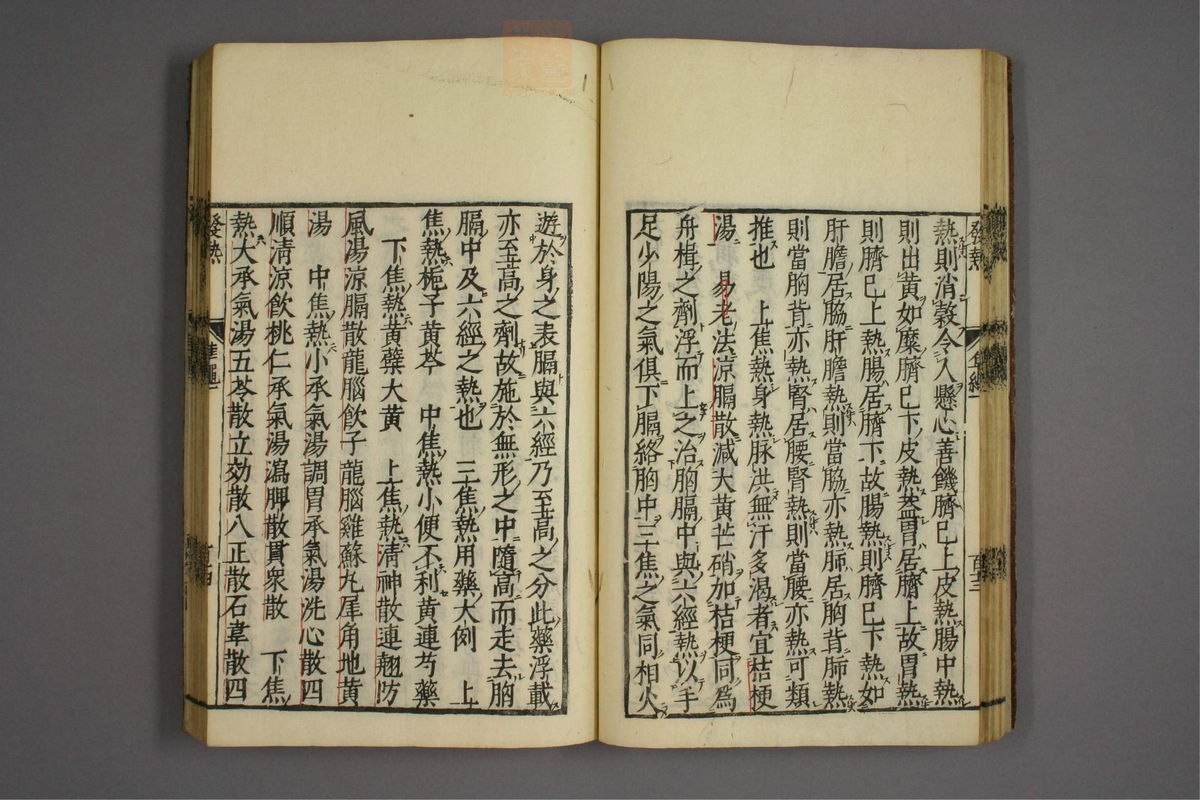 熱則消穀令人懸心善饑臍已上皮熱腸中熱
則出黃如糜臍已下皮熱蓋胃居臍上故胃熱
則臍已上熱腸居臍下故腸熱則臍已下熱如
肝膽居脇肝膽熱則當脇亦熱肺居胸背肺熱
則當胸背亦熱腎居腰腎熱則當腰亦熱可類
推也　上焦熱身熱脉洪無汗多渴者宜桔梗
湯　易老法涼膈散減大黃芒硝加桔梗同為
舟楫之劑浮而上之治胸膈中與六經熱以手
足少陽之氣俱下膈絡胸中三焦之氣同相火
遊於身之表膈與六經乃至高之分此藥浮載
亦至高之劑故施於無形之中隨高而走去胸
膈中及六經之熱也　三焦熱用藥大例　上
焦熱梔子黃芩　中焦熱小便不利黃連芍藥
下焦熱黃蘗大黃　上焦熱清神散連翹防
風湯涼膈散龍腦飲子龍腦雞蘇丸犀角地黃
湯　中焦熱小承氣湯調胃承氣湯洗心散四
順清涼飲桃仁承氣湯瀉脾散貫衆散　下焦
熱大承氣湯五苓散立効散八正散石韋散四
發熱